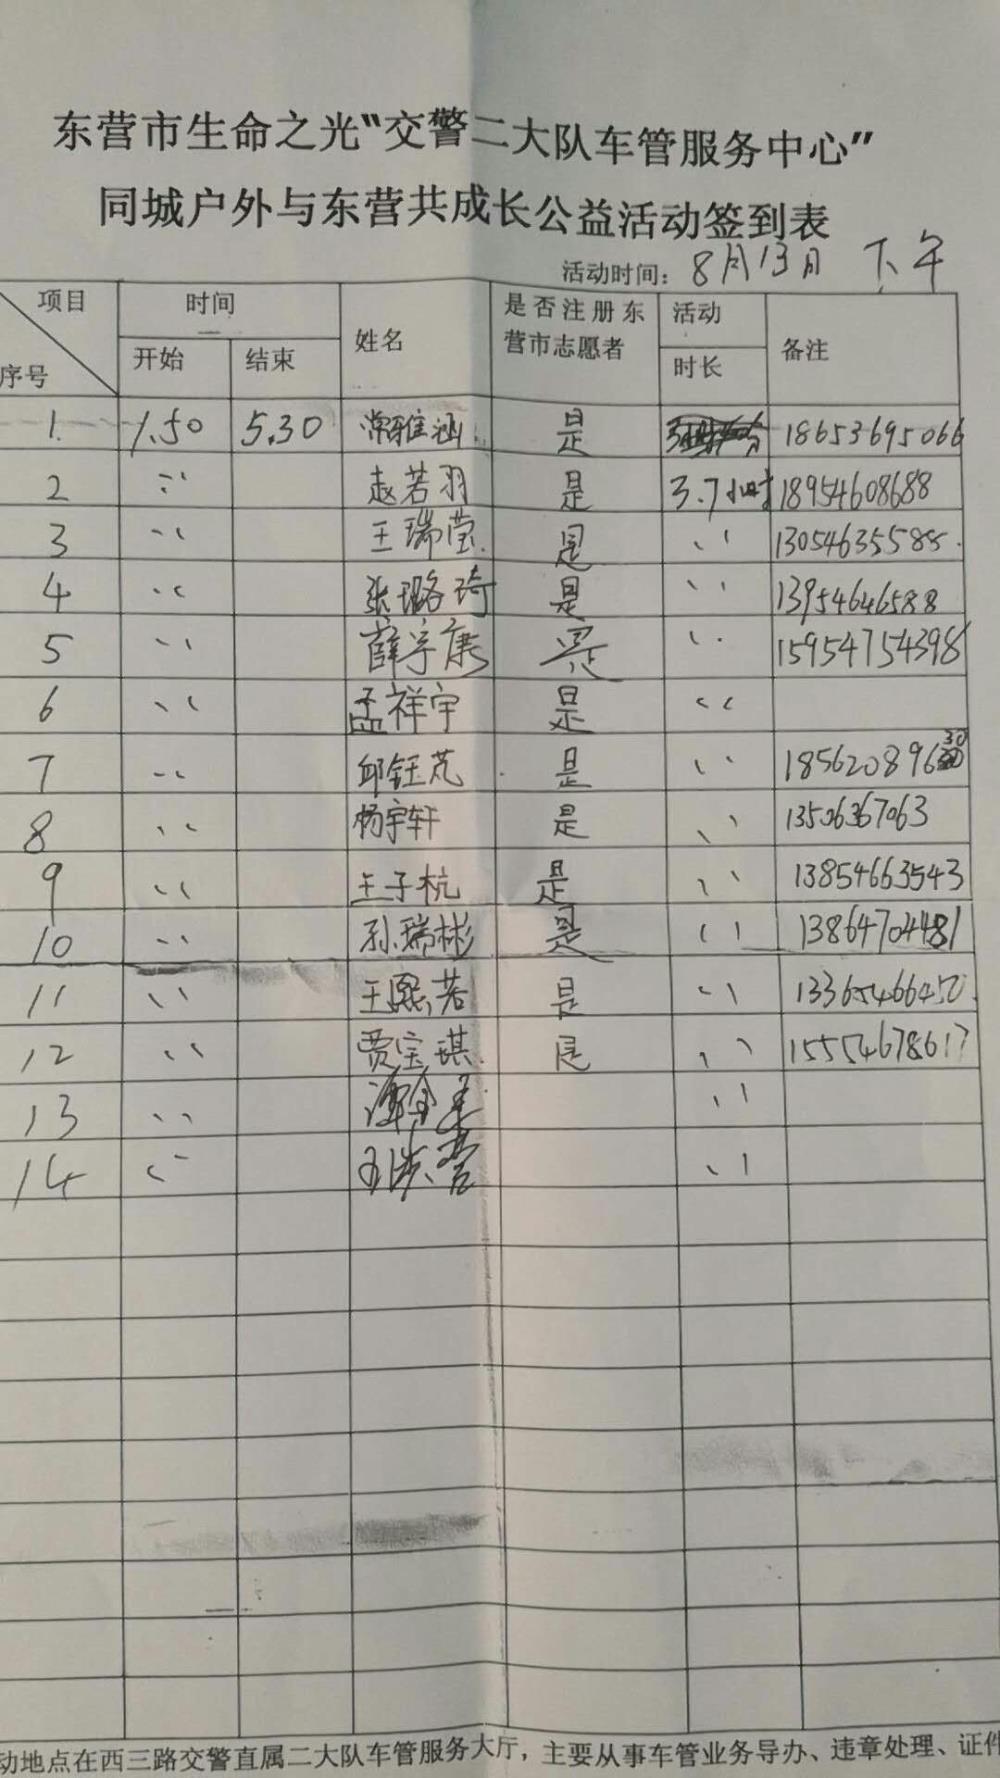 东营市生命之光“交警二大队车管服务中心”
同城户外与东营共成长公益活动签到表
活动时间：8月13日 下午
项目 序号 时间 开始 结束 姓名 是否注册东营市志愿者 活动时长 备注
1. 1.50 5.30 常雅涵 是 18653695066
2 〃 赵若羽 是 3.7小时 18954608688
3 〃 王瑞莹 是 〃 13054635588
4 〃 张璐琦 是 〃 13954646588
5 〃 薛宇康 是 〃 15954754398
6 〃 孟祥宇 是 〃
7 〃 邱钰芃 是 〃 18562089630
8 〃 杨宇轩 是 〃 13506367063
9 〃 王子杭 是 〃 13854663543
10 〃 孙瑞彬 是 〃 13864704481
11 〃 王熙若 是 〃 13365466450
12 〃 贾宝琪 是 〃 15554678617
13 〃 〃
14 〃 〃
动地点在西三路交警直属二大队车管服务大厅，主要从事车管业务导办、违章处理、证件